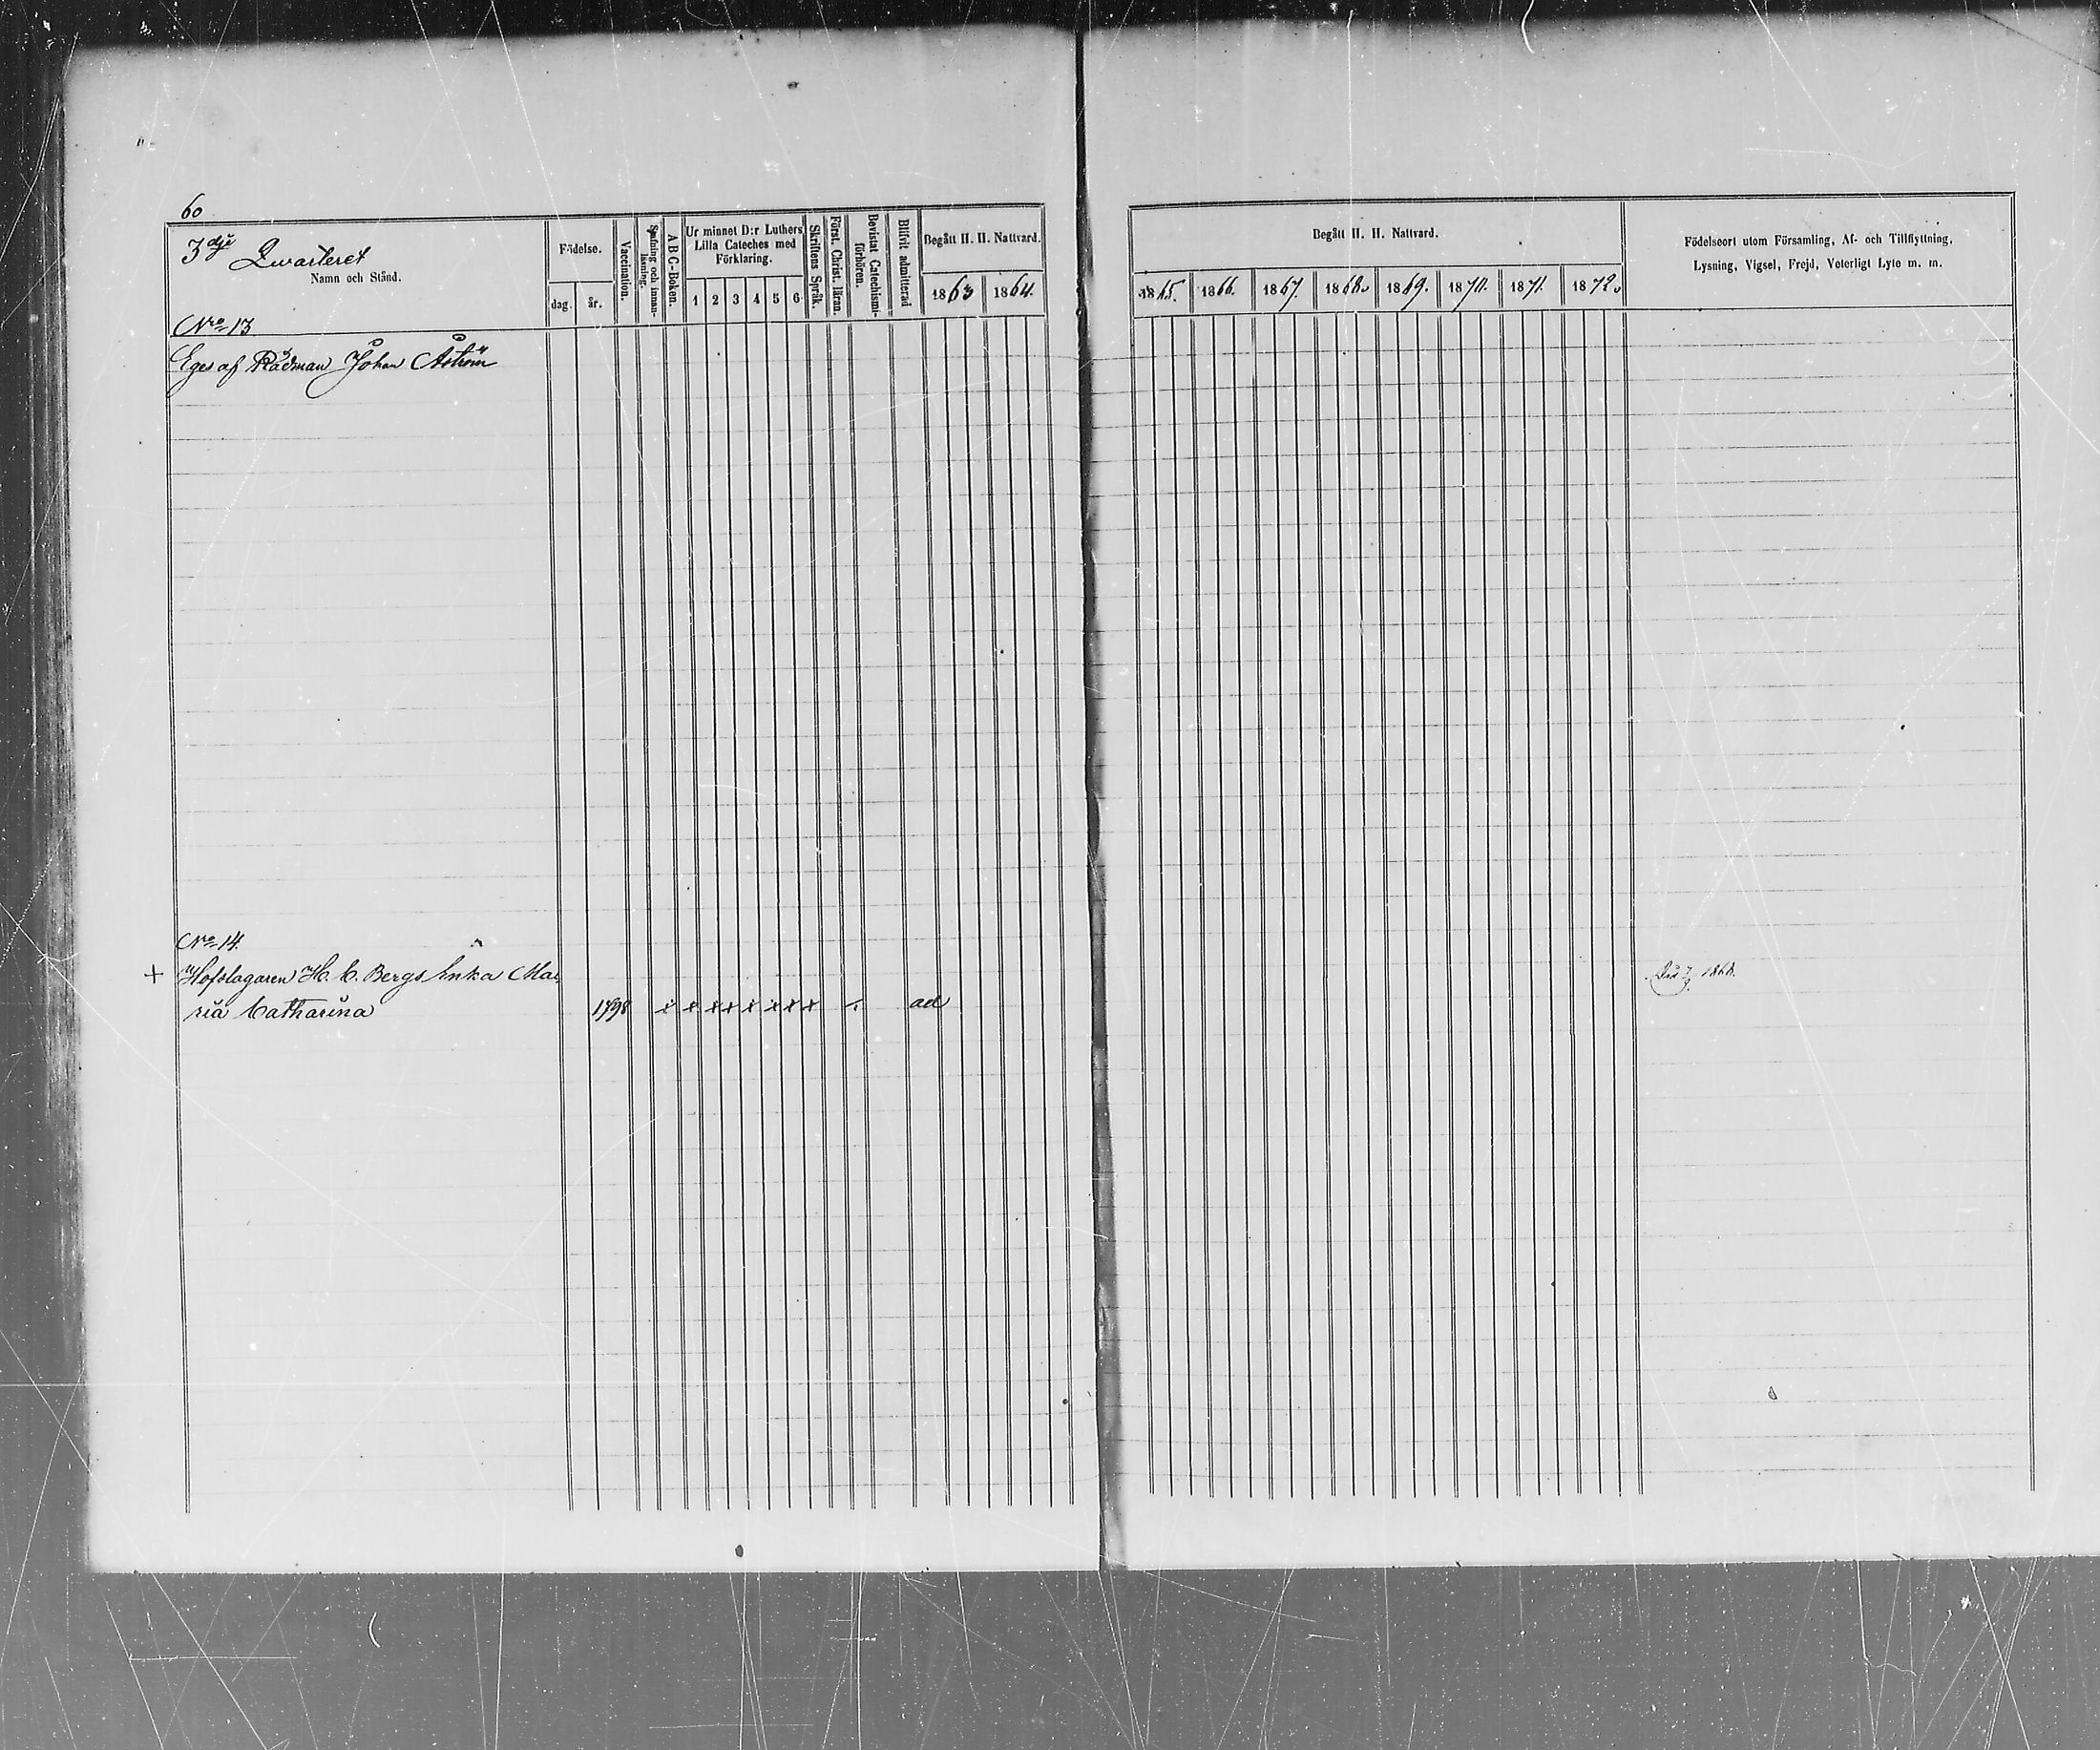 60
3dje Qwarteret
Namn och Stånd.
Födelse.
dag.
år.
Vaccination.
Spafning och innan-läsning.
A B C-Boken.
Ur minnet D:r Luthers
Lilla Cateches med
Förklaring.
1 2 3 4 5 6
Skriftens Språk.
Först. Christ. läran.
Bevistat Catechismi-
förhören.
Blifvit admitterad
Begått H. H. Nattvard.
1863
1864.
Begått H. H. Nattvard.
1865.
1866.
1867.
1868.
1869.
1870.
1871.
1872.
Födelseort utom Församling, Af- och Tillflyttning,
Lysning, Vigsel, Frejd, Veterligt Lyte m. m.
No 13
Eges af Rådman Johan Åström
No 14.
+ Hofslagaren H. C. Bergs Enka Ma-
ria Catharina 1798 x x x x x x x x ad
1868.